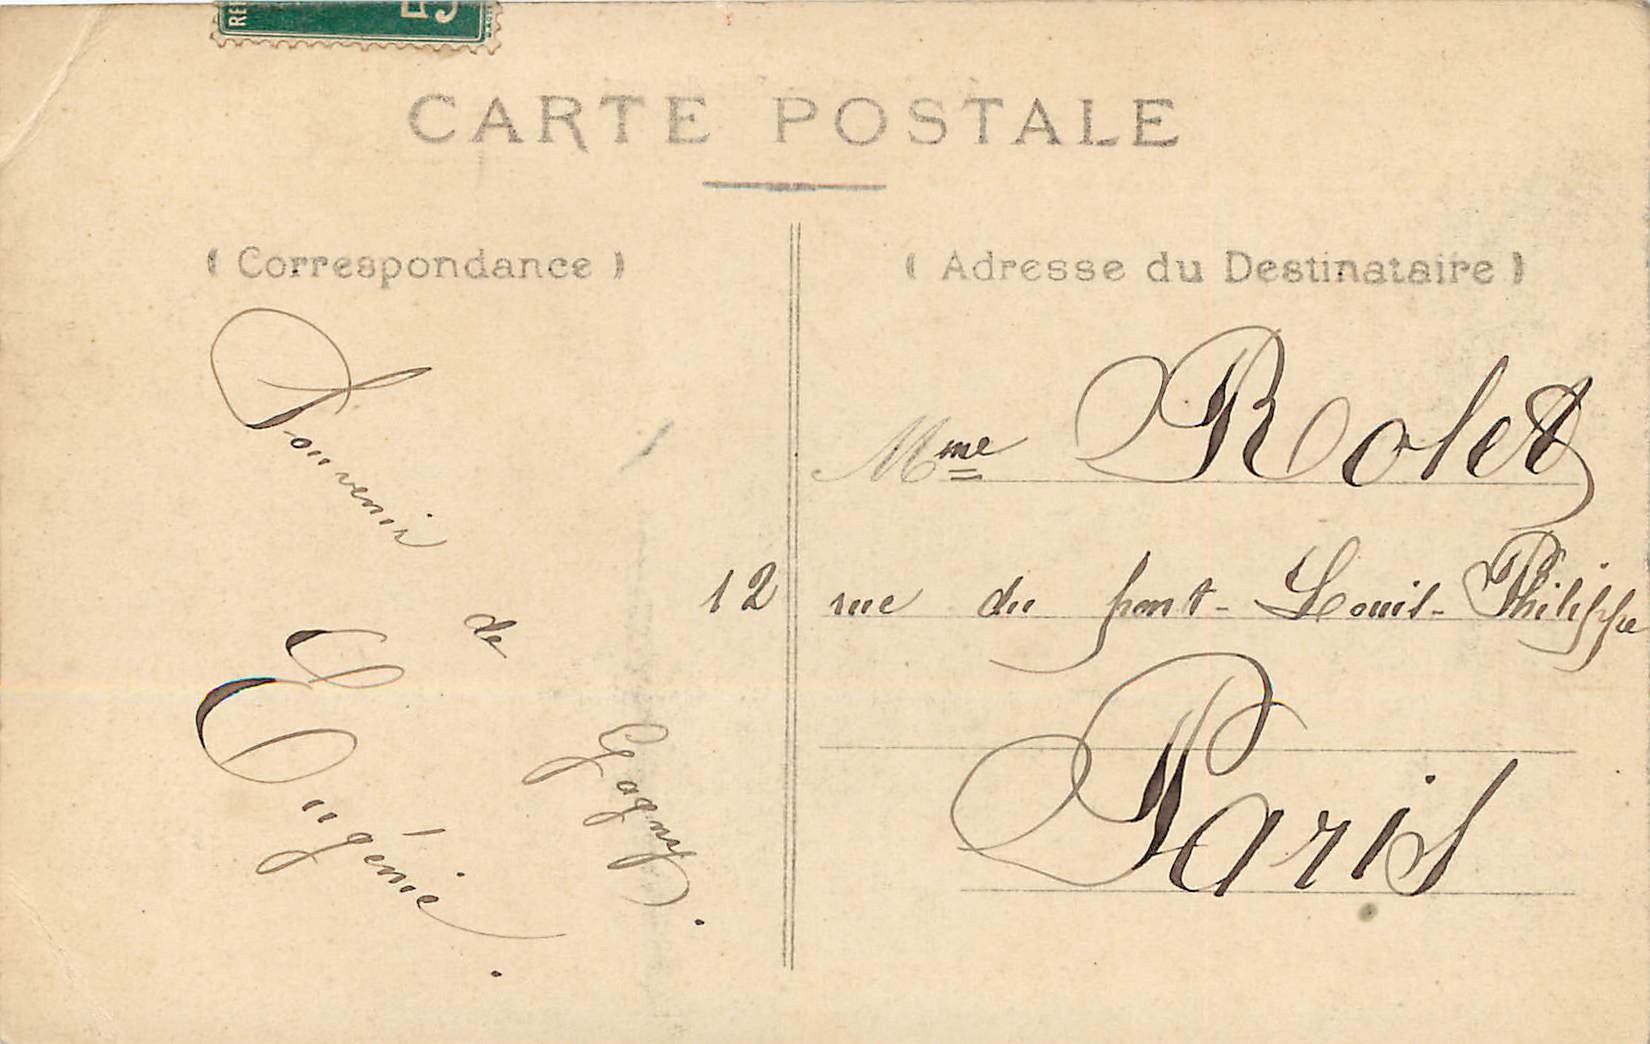 CARTE POSTALE
( Correspondance )
Souvenir
de
Gagny.
Eugénie.
( Adresse du Destinataire )
Mme Rolet
12 rue du pont-Louis-Philippe
Paris